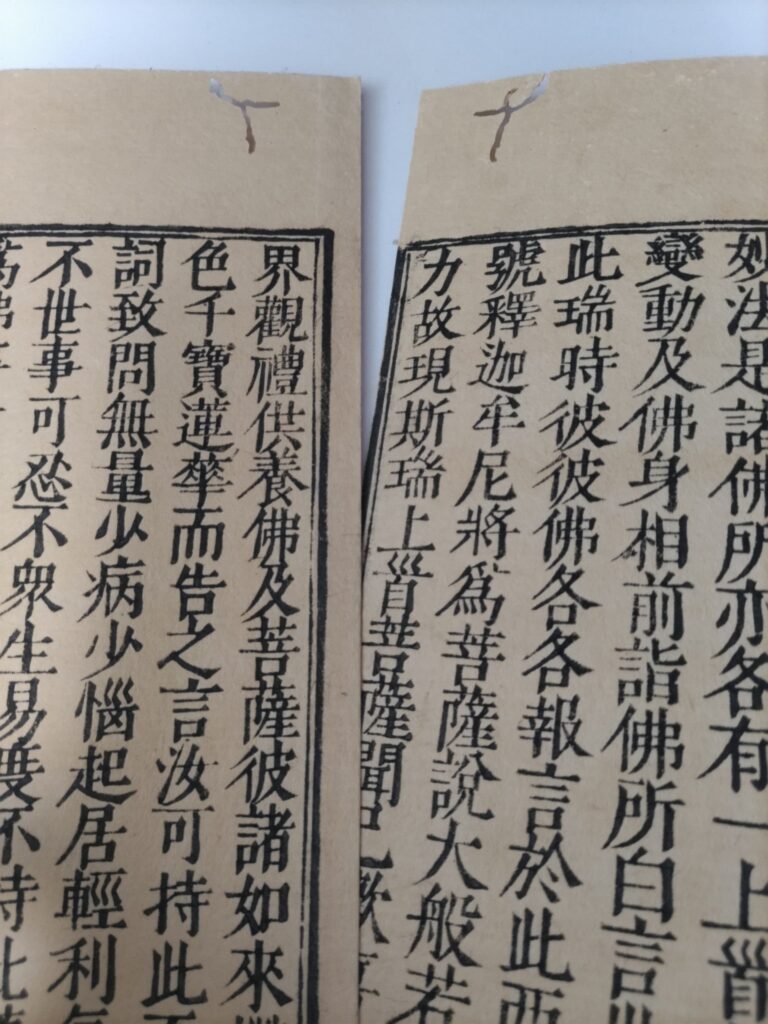 妙法是諸佛所亦各有一上首
變動及佛身相前詣佛所白言世
此瑞時彼彼佛各各報言於此西
號釋迦牟尼將爲菩薩說大般若
力故現斯瑞上首菩薩聞已歡喜
界觀禮供養佛及菩薩彼諸如來
色千寶蓮華而告之言汝可持此
詞致問無量少病少惱起居輕利氣
不世事可忍不衆生易度不持此